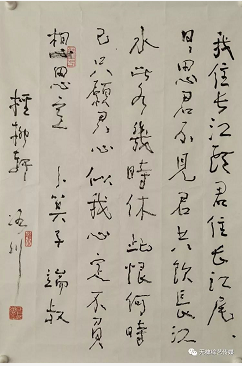 我住长江頭君住长江尾、
日日思君不見君共飲長江
水此水幾時休此恨何時
已只願君心似我心定不負
相思意 卜算子 端叔